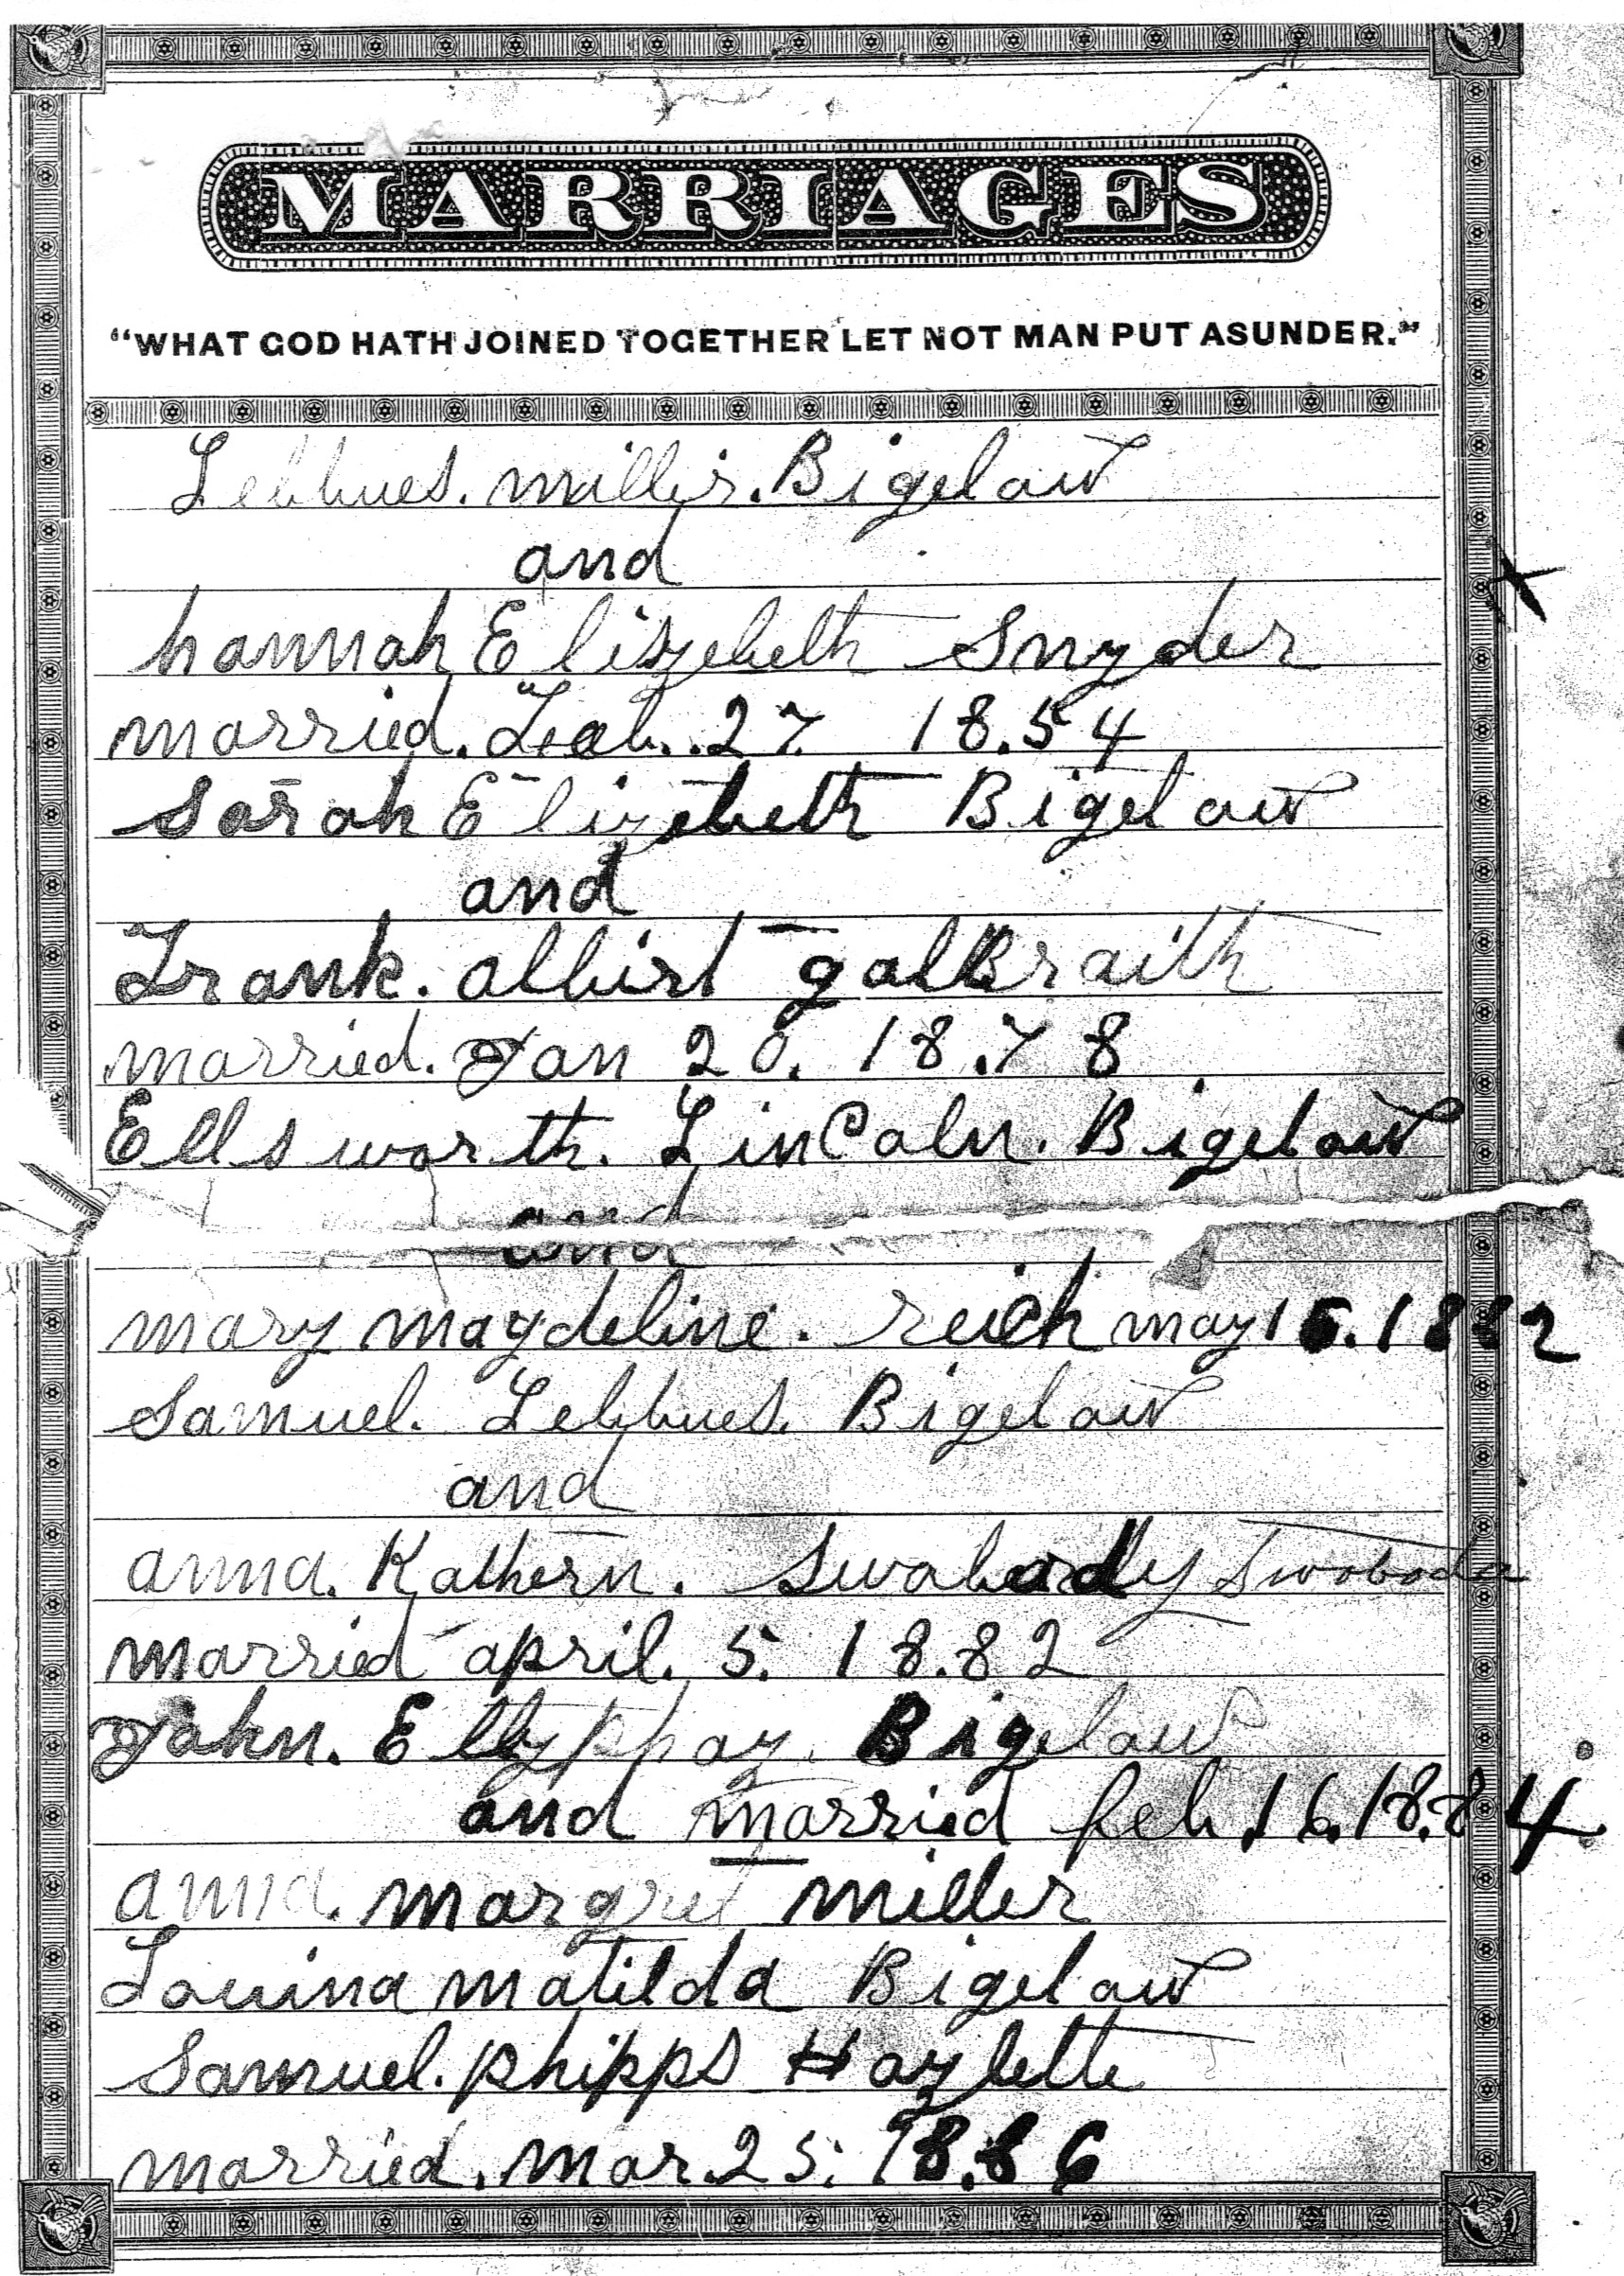 MARRIAGES
"WHAT GOD HATH JOINED TOGETHER LET NOT MAN PUT ASUNDER."
Lebbues. miller. Bigelow
and
hannah Elizebeth Snyder
married. Feb. 27 18.54
Sarah Elizebeth Bigelow
and
Frank. albert galBraith
married. Jan 20. 18.78
Ellsworth. LinColn. Bigelow
and
mary magdeline. reich may 16. 1882
Samuel. Lebbues. Bigelow
and
anna. Kathern. Swabody Swoboda
married april. 5. 18.82
John. Bigelow
and married feb. 16. 18.84
anna. margret miller
Louina matilda Bigelow
Samuel. phipps Hazlette
married. mar. 25. 18.86